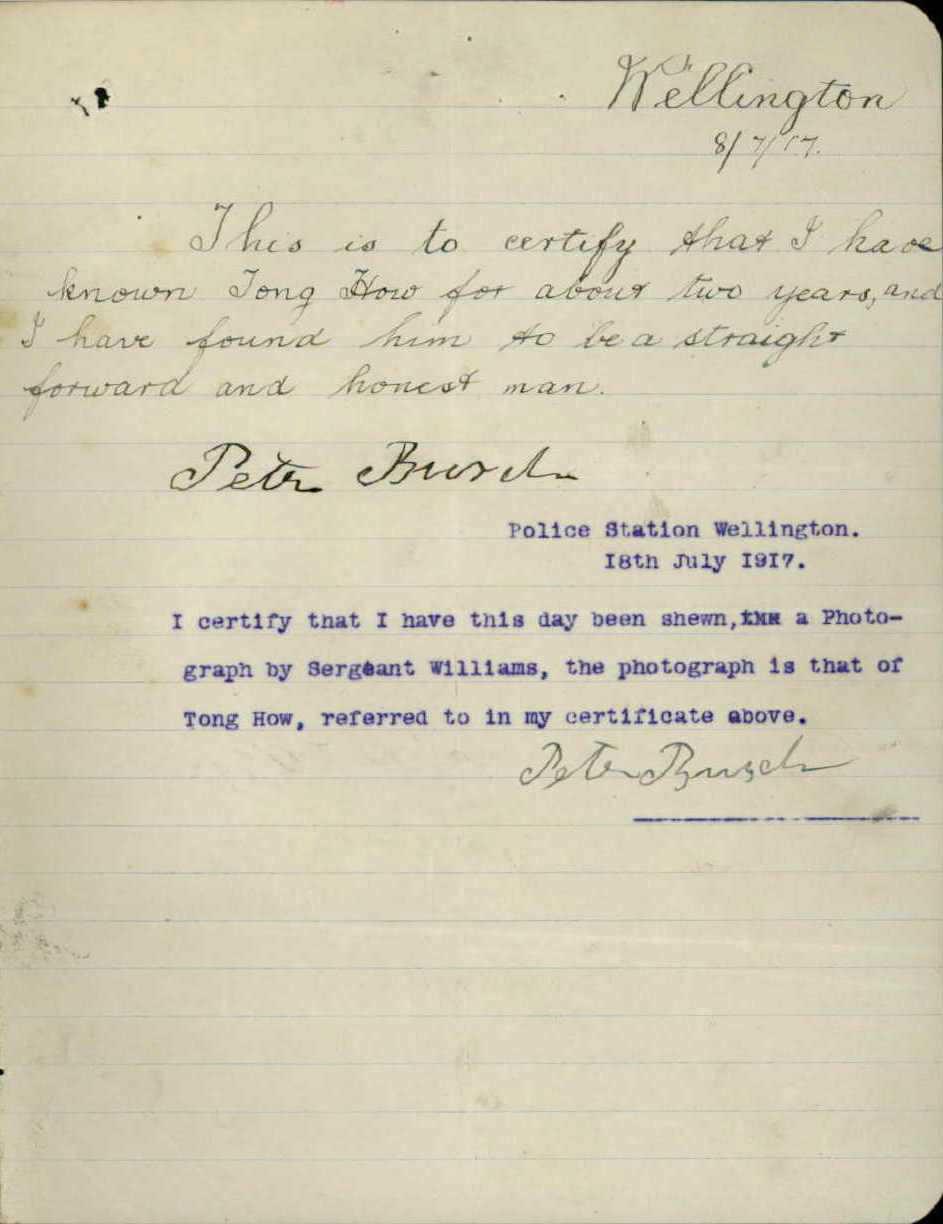 Wellington
8/7/17.
This is to certify that I have
known Tong How for about two years, and
I have found him to be a straight
forward and honest man.
Peter Busch
Police Station Wellington.
I8th July I9I7.
I certify that I have this day been shewn, a Photo-
graph by Sergeant Williams, the photograph is that of
Tong How, referred to in my certificate above.
Peter Busch